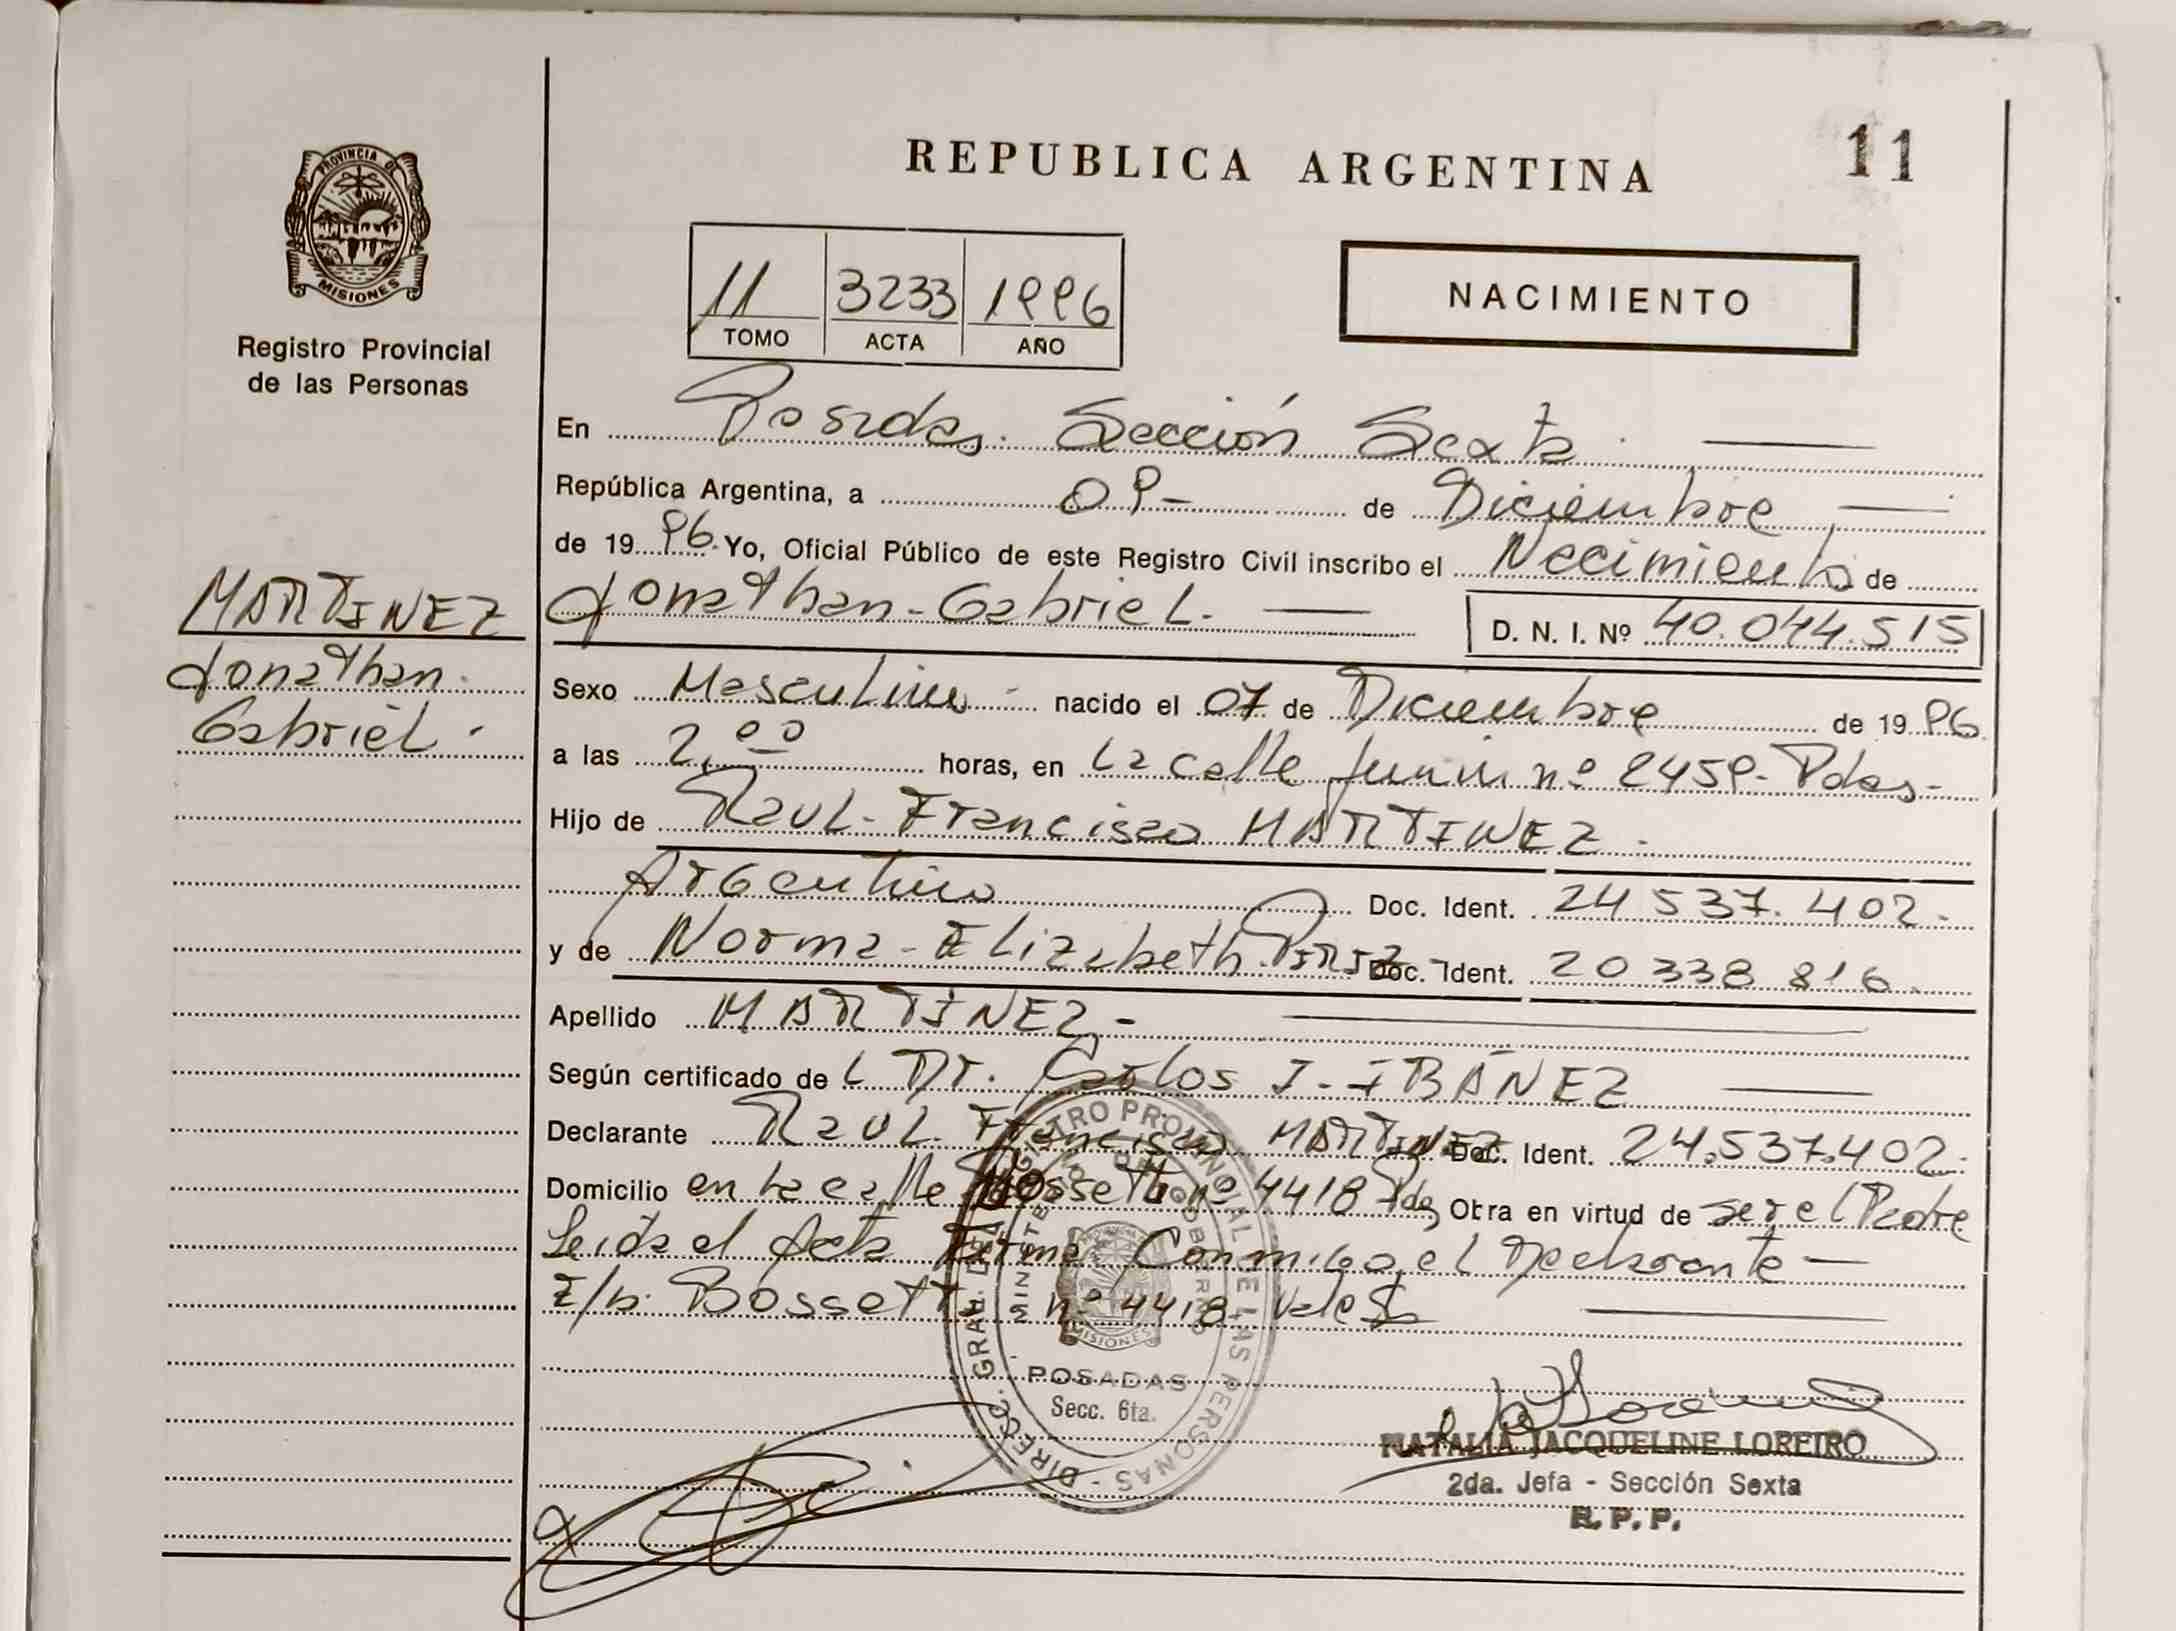 PROVINCIA DE
MISIONES
Registro Provincial
de las Personas
REPUBLICA ARGENTINA
11
11 3233 1996
TOMO ACTA AÑO
NACIMIENTO
En Posadas. Sección Sexta.
República Argentina, a 09- de Diciembre
de 1996. Yo, Oficial Público de este Registro Civil inscribo el Nacimiento de
MARTINEZ
Jonathan-Gabriel. D. N. I. Nº 40.044.515
Jonathan.
Gabriel.
Sexo Masculino- nacido el 07 de Diciembre de 1996
a las 2,00 horas, en La calle Junin nº 2459- Pdas-
Hijo de Raul-Francisco MARTINEZ.
Argentino Doc. Ident. 24 537.402.
y de Norma-Elizabeth Doc. Ident. 20 338 816.
Apellido MARTINEZ-
Según certificado del Dr. Carlos I. IBÁÑEZ
Declarante Raul. Francisco MARTINEZ Doc. Ident. 24.537.402.
Domicilio en la calle Bossetti nº 4418 Pdas Otra en virtud de ser el Padre
Leida el Acta Firma Conmigo, el Declarante-
E/b. Bossetti nº 4418 Vale
DIREC. GRAL. DEL REGISTRO PROVINCIAL DE LAS PERSONAS -
MINISTERIO DE GOBIERNO
MISIONES
POSADAS
Secc. 6ta.
NATALIA JACQUELINE LOREIRO
2da. Jefa - Sección Sexta
R. P. P.